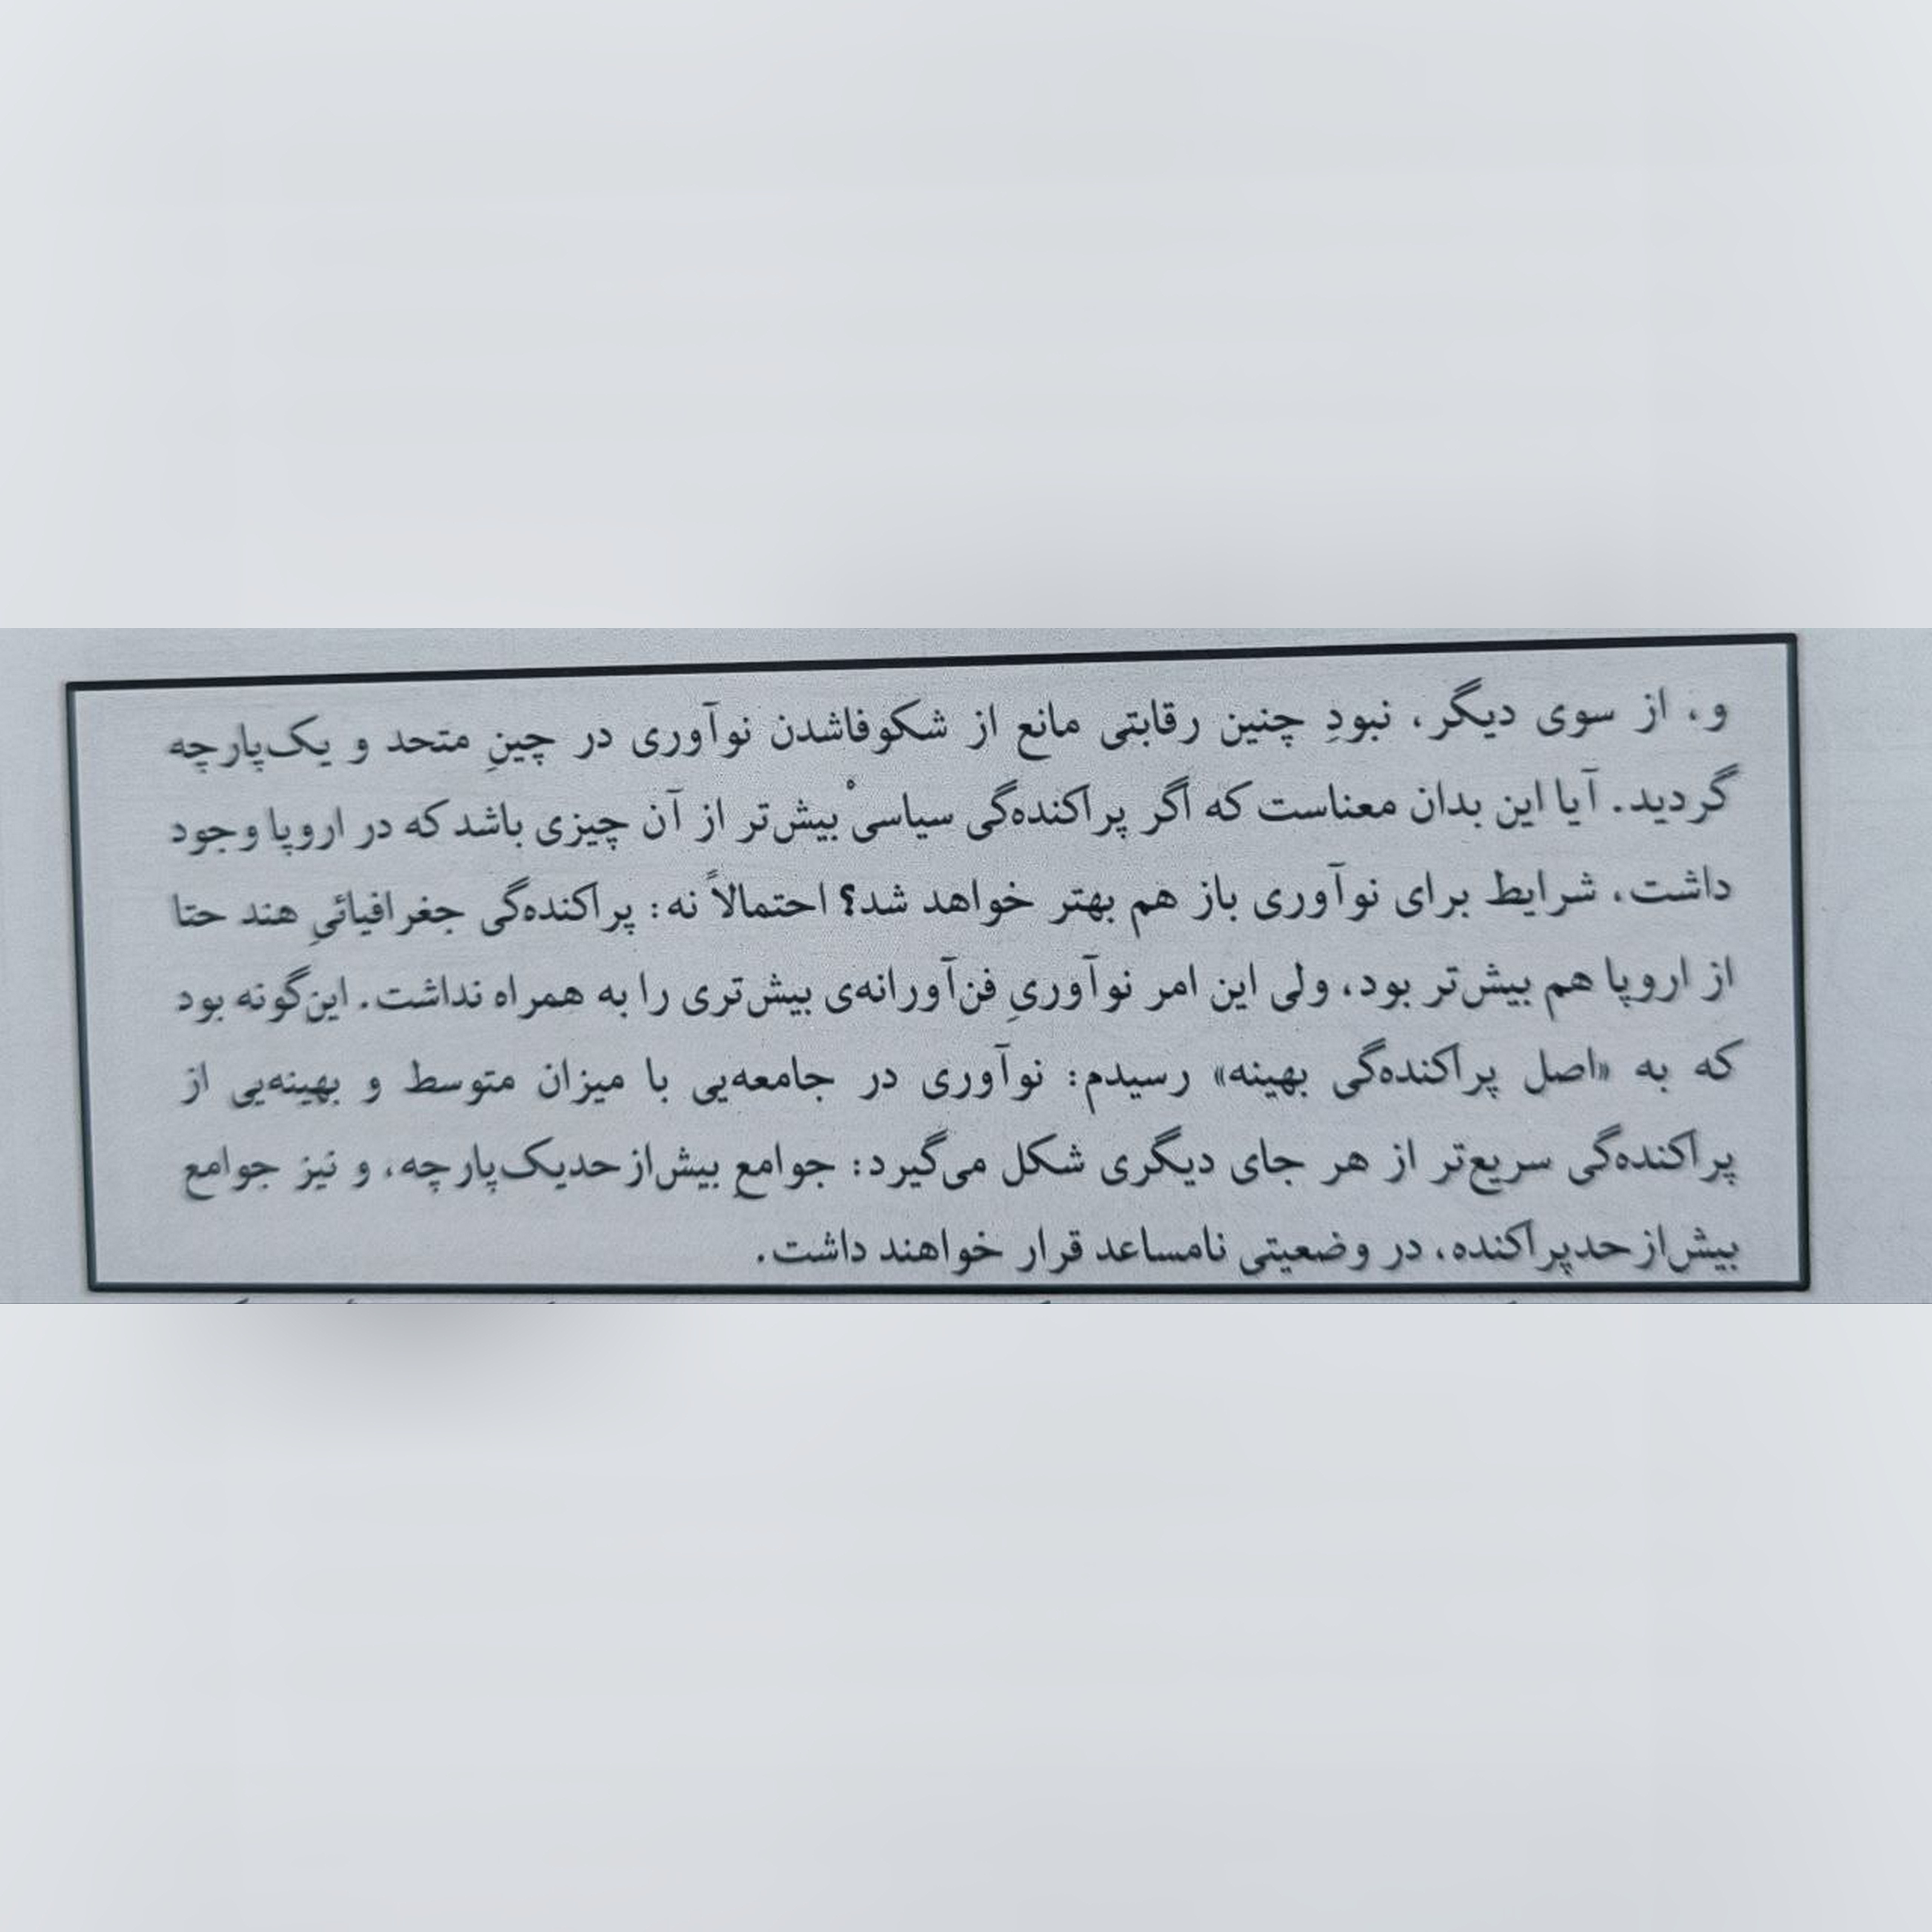 و، از سوی دیگر، نبودِ چنین رقابتی مانع از شکوفاشدن نوآوری در چینِ متحد و یک‌پارچه
گردید. آیا این بدان معناست که اگر پراکنده‌گی سیاسیْ بیش‌تر از آن چیزی باشد که در اروپا وجود
داشت، شرایط برای نوآوری باز هم بهتر خواهد شد؟ احتمالاً نه: پراکنده‌گی جغرافیائیِ هند حتا
از اروپا هم بیش‌تر بود، ولی این امر نوآوریِ فن‌آورانه‌ی بیش‌تری را به همراه نداشت. این‌گونه بود
که به «اصل پراکنده‌گی بهینه» رسیدم: نوآوری در جامعه‌یی با میزان متوسط و بهینه‌یی از
پراکنده‌گی سریع‌تر از هر جای دیگری شکل می‌گیرد: جوامعِ بیش‌ازحدیک‌پارچه، و نیز جوامع
بیش‌ازحدپراکنده، در وضعیتی نامساعد قرار خواهند داشت.